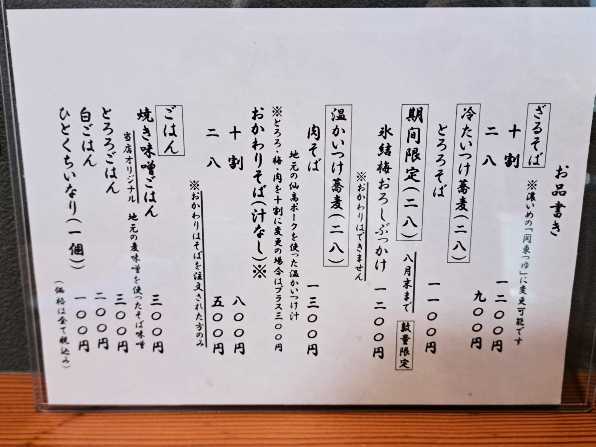 お品書き
ざるそば ※濃いめの「関東つゆ」に変更可能です
十割 一二〇〇円
二八 九〇〇円
冷たいつけ蕎麦(二八)
とろろそば 一一〇〇円
期間限定(二八) 八月末まで 数量限定
氷結梅おろしぶっかけ 一二〇〇円
※おかわりはできません
温かいつけ蕎麦(二八)
肉そば 一三〇〇円
地元の仙高ポークを使った温かいつけ汁
※とろろ・梅・肉を十割に変更の場合はプラス三〇〇円
おかわりそば(汁なし)※
十割 八〇〇円
二八 五〇〇円
※おかわりはそばを注文された方のみ
ごはん
焼き味噌ごはん 三〇〇円
当店オリジナル 地元の麦味噌を使ったそば味噌
とろろごはん 三〇〇円
白ごはん 二〇〇円
ひとくちいなり(一個) 一〇〇円
(価格は全て税込み)